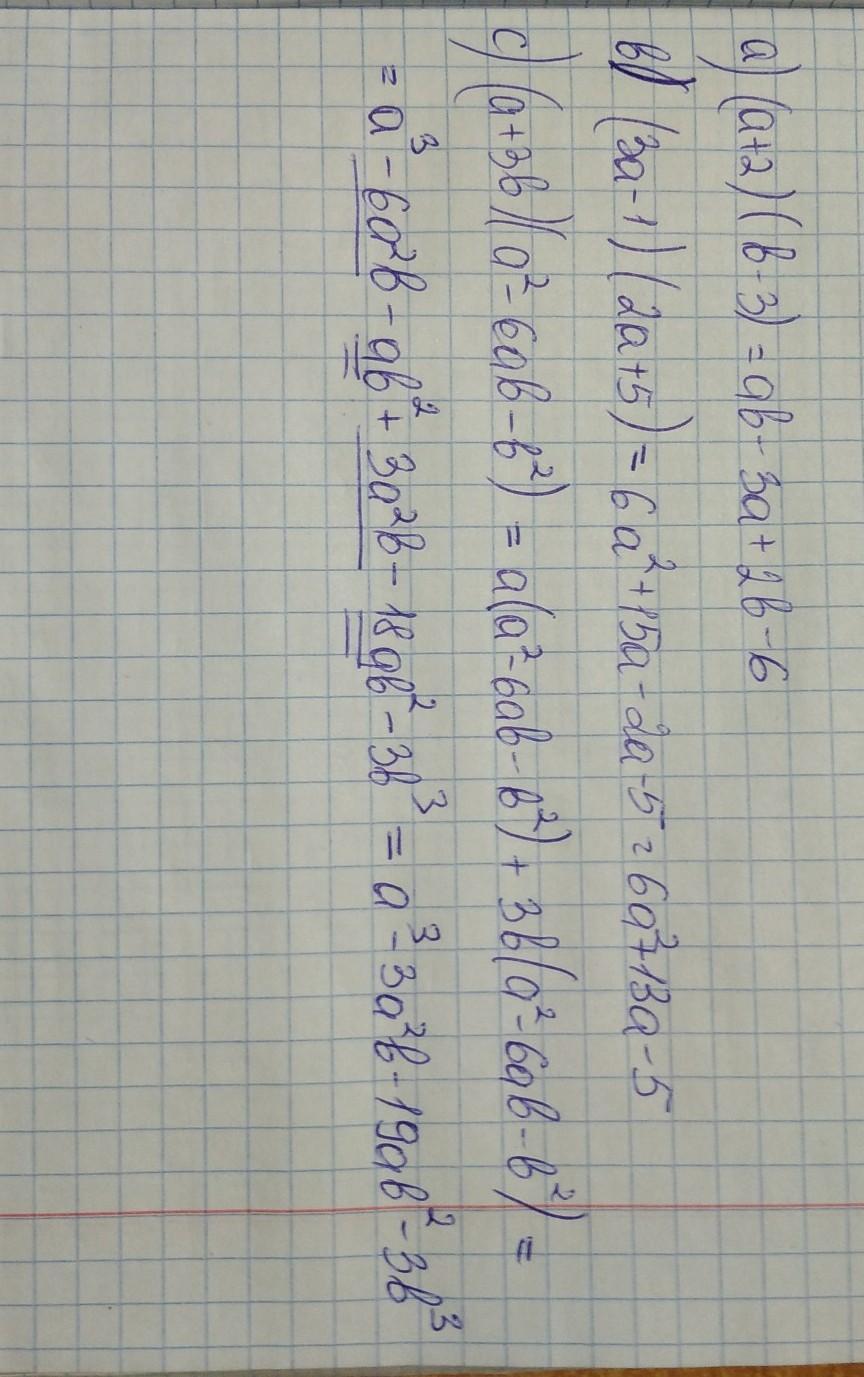 a) (a+2)(b-3)=ab-3a+2b-6
b) (3a-1)(2a+5)=6a²+15a-2a-5=6a²+13a-5
c) (a+3b)(a²-6ab-b²)=a(a²-6ab-b²)+3b(a²-6ab-b²)=
=a³-6a²b-ab²+3a²b-18ab²-3b³=a³-3a²b-19ab²-3b³